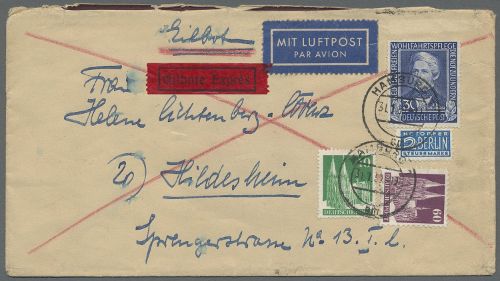 Eilbot
MIT LUFTPOST
PAR AVION
Eilbote Exprès
WOHLFAHRTSPFLEGE
30
DEUTSCHE POST
HAMBURG
Frau
Helene Lichtenberg-
NOTOPFER
2 BERLIN
STEUERMARKE
HAMBURG
20) Hildesheim
DEUTSCHE
60
Sprengerstrasse No 13. I. l.